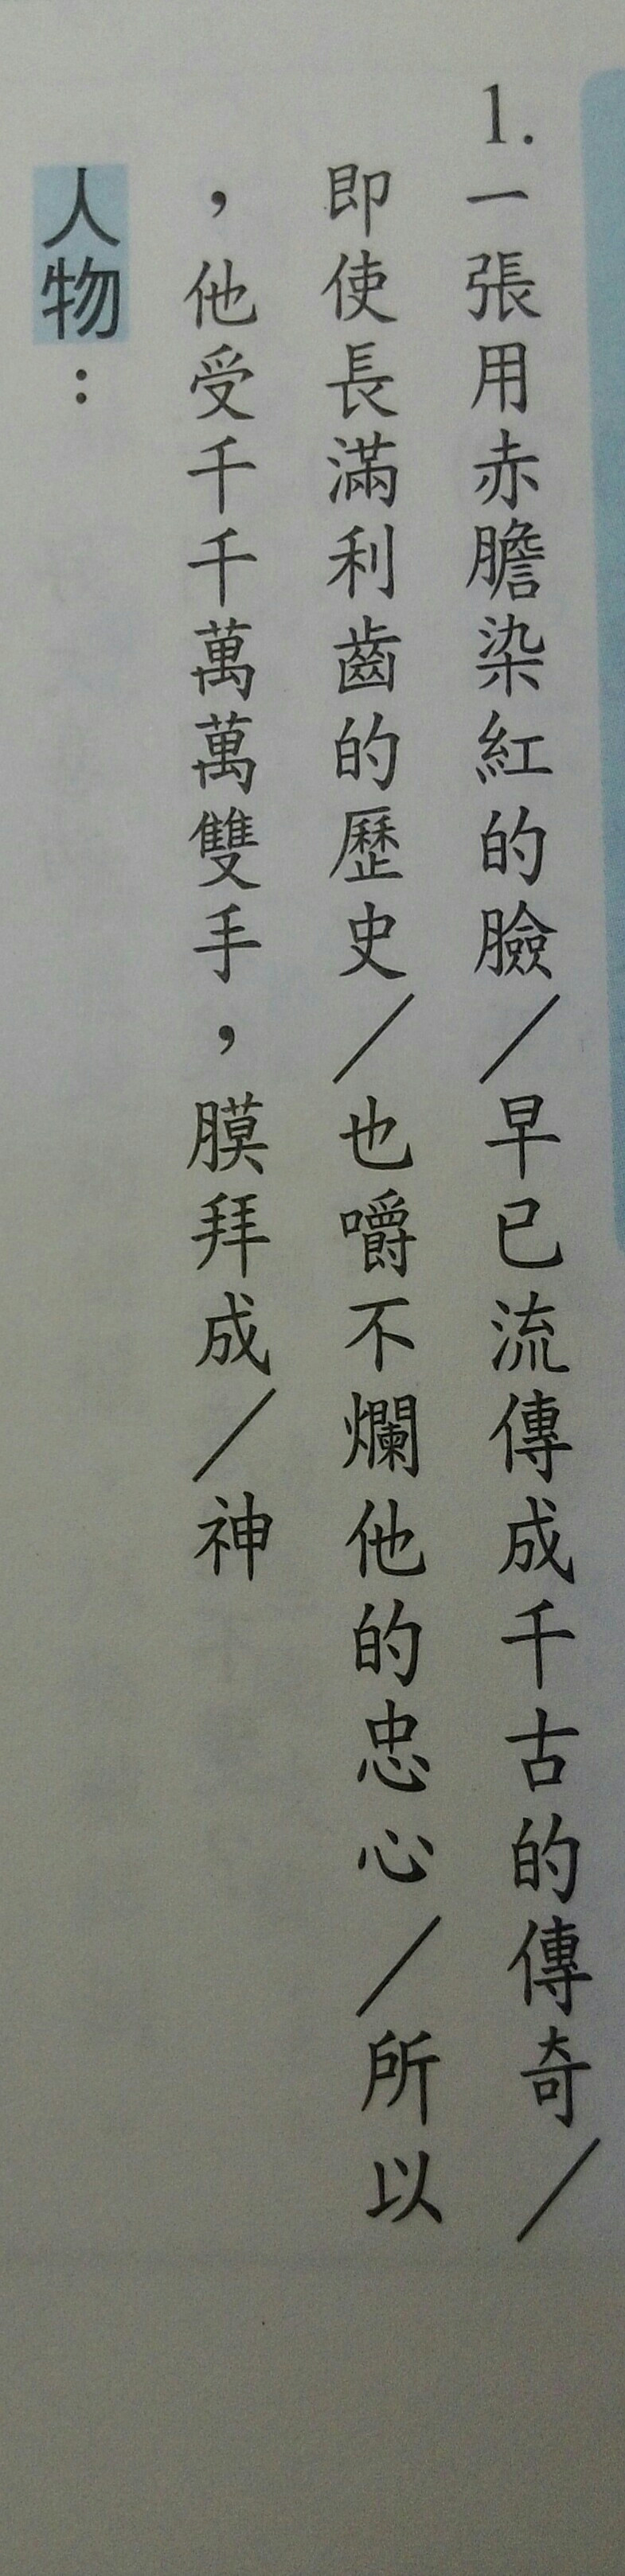 1.一張用赤膽染紅的臉／早已流傳成千古的傳奇／
即使長滿利齒的歷史／也嚼不爛他的忠心／所以
，他受千千萬萬雙手，膜拜成／神
人物：